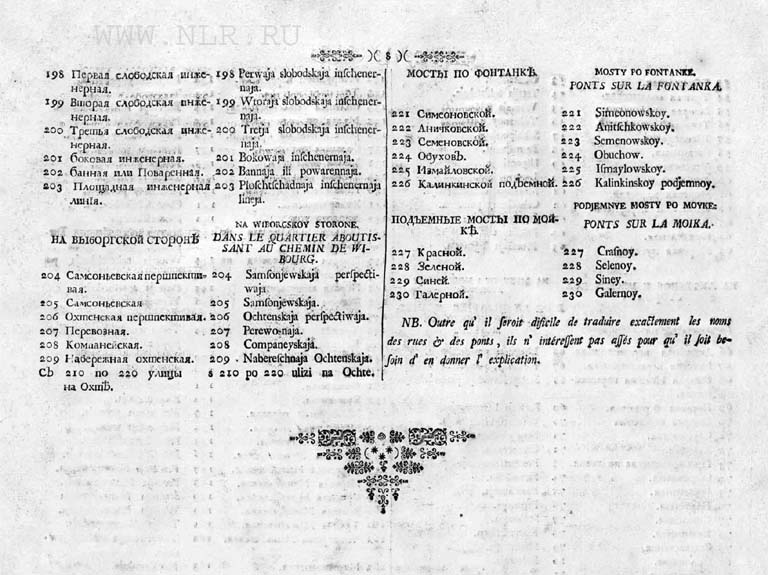 WWW.NLR.RU
8
198 Первая слободская инже-
нерная.
199 Вторая слободская инже-
нерная.
200 Третья слободская инже-
нерная.
201 боковая инженерная.
202 банная или Поваренная.
203 Площадная инженерная
линїя.
НА ВЫБОРГСКОЙ СТОРОНѢ
204 Самсоньевская першпекти-
вая.
205 Самсоньевская
206 Охтенская першпективая.
207 Перевозная.
208 Компанейская.
209 Набережная охтенская.
Съ 210 по 220 улицы
на Охтѣ.
198 Perwaja slobodskaja inſchener-
naja.
199 Wtoraja slobodskaja inſchener-
naja.
200 Tretja slobodskaja inſchener-
naja.
201 Bokowaja inſchenernaja.
202 Bannaja ili powarennaja.
203 Ploſchtſchadnaja inſchenernaja
lineja.
NA WIBORGSKOY STORONE.
DANS LE QUARTIER ABOUTIS-
SANT AU CHEMIN DE WI-
BOURG.
204 Samſonjewskaja perſpecti-
waja.
205 Samſonjewskaja.
206 Ochtenskaja perſpectiwaja.
207 Perewosnaja.
208 Companeyskaja.
209 Nabereſchnaja Ochtenskaja.
s 210 po 220 ulizi na Ochte.
МОСТЫ ПО ФОНТАНКѢ.
221 Симеоновской.
222 Аничковской.
223 Семеновской.
224 Обуховъ.
225 Измайловской.
226 Калинкинской подъемной.
ПОДЪЕМНЫЕ МОСТЫ ПО МОЙ-
КѢ.
227 Красной.
228 Зеленой.
229 Синей.
230 Галерной.
MOSTY PO FONTANKE.
PONTS SUR LA FONTANKA.
221 Simeonowskoy.
222 Anitſchkowskoy.
223 Semenowskoy.
224 Obuchow.
225 Iſmaylowskoy.
226 Kalinkinskoy podjemnoy.
PODJEMNYE MOSTY PO MOYKE:
PONTS SUR LA MOIKA.
227 Craſnoy.
228 Selenoy.
229 Siney.
230 Galernoy.
NB. Outre qu' il ſeroit dificile de traduire exactement les noms
des rues & des ponts, ils n' intéreſſent pas aſſés pour qu' il ſoit be-
ſoin d' en donner l' explication.